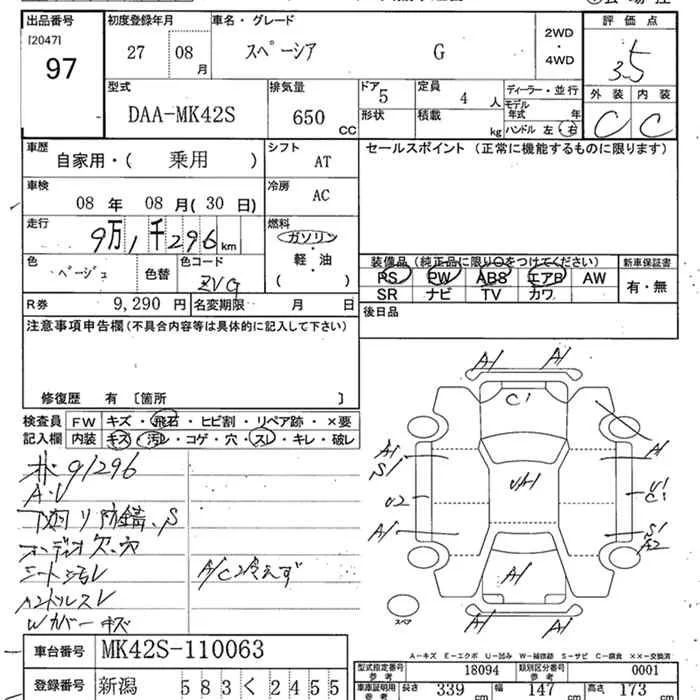 出品番号 初度登録年月 車名・グレード 評価点
[2047] 97 27 08月 スペーシア G 2WD・4WD 3.5
型式 排気量 ドア 5 定員 4人 ディーラー・並行 外装 内装
DAA-MK42S 650 CC 形状 積載 kg モデル年式 年 C C
ハンドル 左 右
車歴 自家用・( 乗用 ) シフト AT セールスポイント (正常に機能するものに限ります)
車検 08年 08月(30日) 冷房 AC
走行 9万1千296km 燃料 ガソリン・軽油 ( )
色 ベージュ 色替 色コード ZVG
装備品 (純正品に限り○をつけてください) 新車保証書
PS PW ABS エアB AW 有・無
SR ナビ TV カワ
R券 9,290円 名変期限 月 日 後日品
注意事項申告欄(不具合内容等は具体的に記入して下さい)
修復歴 有 〔箇所 〕
検査員記入欄 FW キズ・飛石・ヒビ割・リペア跡・×要
内装 キズ・汚レ・コゲ・穴・スレ・キレ・破レ
91296
A・V
下回リ防錆、S
オーディオ欠、穴
シート汚レ A/C冷えず
ハンドルスレ
Wカバーキズ
A1 A1
C1
A1 A1
S1
U2 U/A1 U1
C1
A1 S1
A2
A1
A1 A1
スペア
A-キズ E-エクボ U-凹み W-補修跡 S-サビ C-腐食 ××-交換済
車台番号 MK42S-110063
登録番号 新潟 583く2455
型式指定番号 参考 18094 類別区分番号 参考 0001
車庫証明用 参考 長さ 339cm 幅 147cm 高さ 173cm